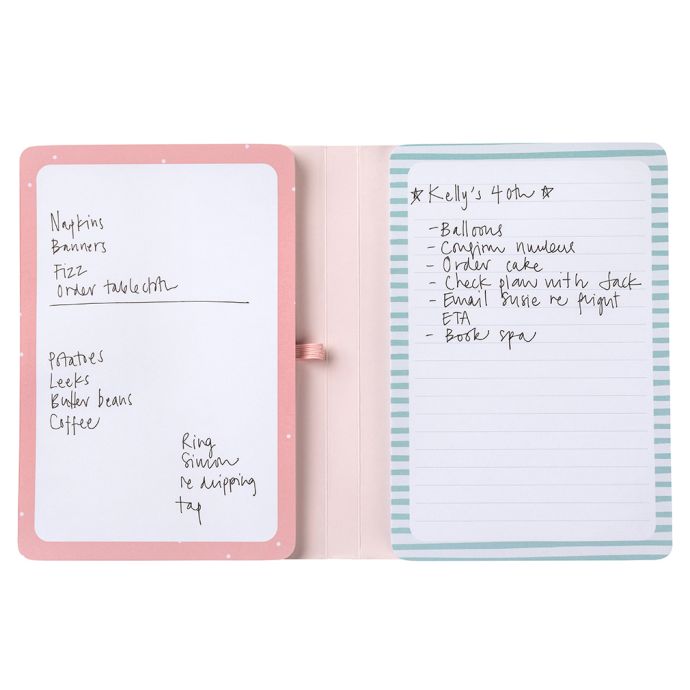 Napkins
Banners
Fizz
Order tablecloth
Potatoes
Leeks
Butter beans
Coffee
Ring
Simon
re dripping
tap
☆ Kelly's 40th ☆
- Balloons
- Confirm numbers
- Order cake
- Check plan with Jack
- Email Susie re flight
ETA
- Book spa